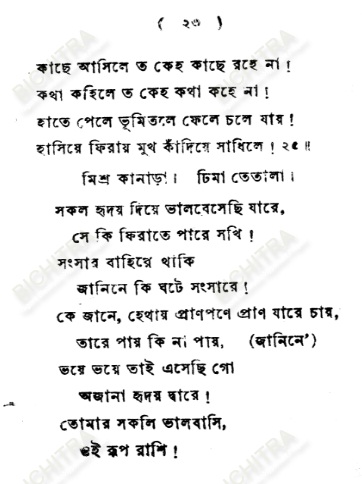 ( ২৩ )
কাছে আসিলে ত কেহ কাছে রহে না !
কথা কহিলে ত কেহ কথা কহে না !
হাতে পেলে ভূমিতলে ফেলে চলে যায় !
হাসিয়ে ফিরায় মুখ কাঁদিয়ে সাধিলে ! ২৫ ॥
মিশ্র কানাড়া । ঢিমা তেতালা ।
সকল হৃদয় দিয়ে ভালবেসেছি যারে,
সে কি ফিরাতে পারে সখি !
সংসার বাহিরে থাকি
জানিনে কি ঘটে সংসারে !
কে জানে, হেথায় প্রাণপণে প্রাণ যারে চায়,
তারে পায় কি না পায়, (জানিনে')
ভয়ে ভয়ে তাই এসেছি গো
অজানা হৃদয় দ্বারে !
তোমার সকলি ভালবাসি,
ওই রূপ রাশি !
BICHITRA